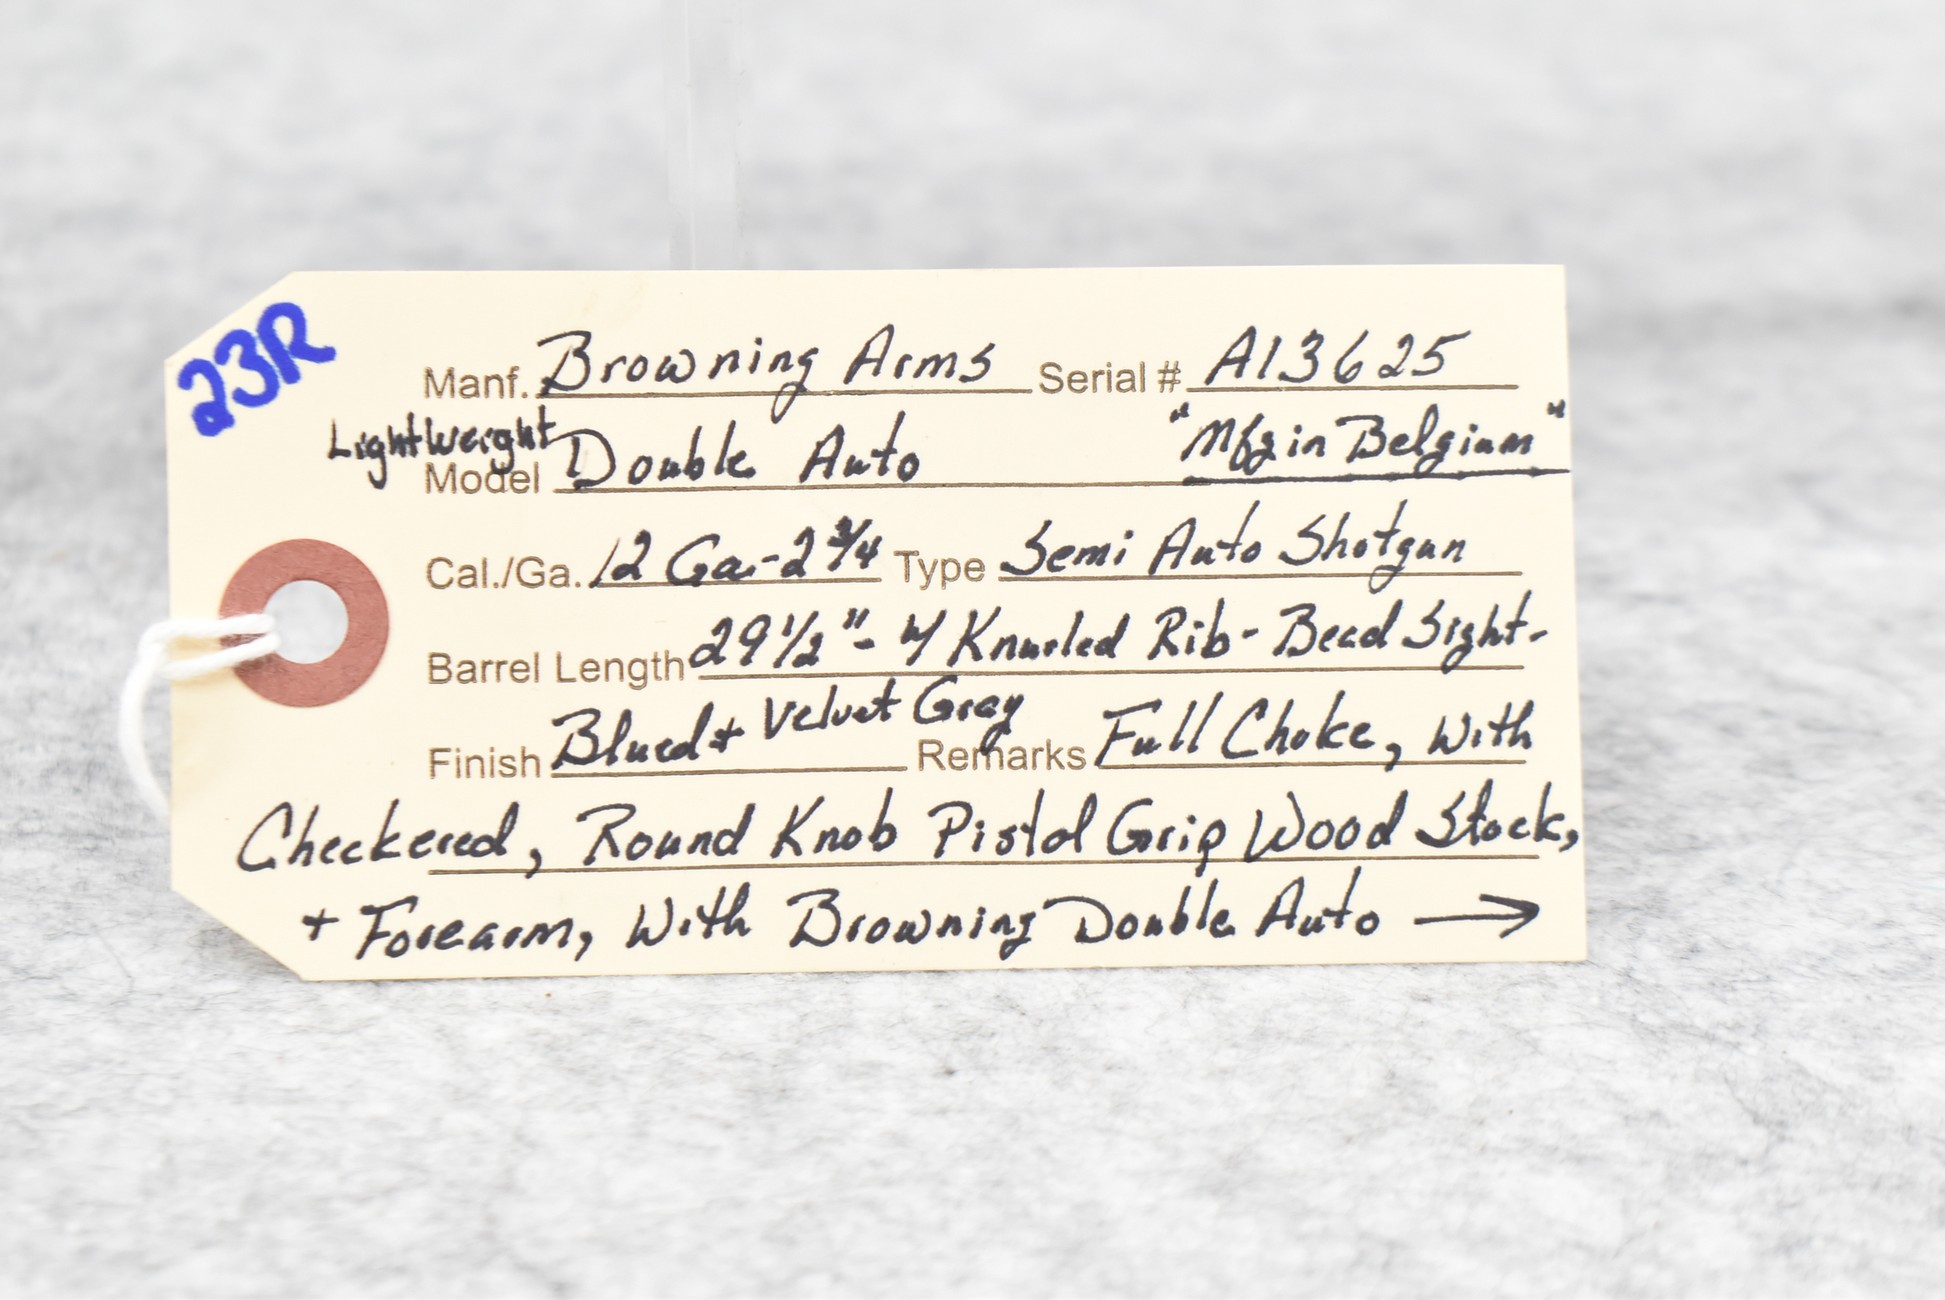 23R
Manf. Browning Arms Serial # A13625
Lightweight
Model Double Auto "Mfg in Belgium"
Cal./Ga. 12 Ga.-2 3/4 Type Semi Auto Shotgun
Barrel Length 29 1/2" - w/ Knurled Rib - Bead Sight -
Finish Blued + Velvet Gray Remarks Full Choke, With
Checkered, Round Knob Pistol Grip Wood Stock,
+ Forearm, With Browning Double Auto →